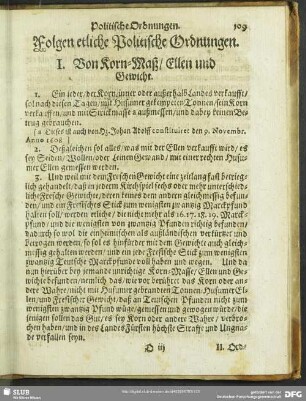 Politische Ordnungen. 109
Folgen etliche Politische Ordnungen.
I. Von Korn-Maß/ Ellen und
Gewicht.
1. Ein jeder/ der Korn inner oder außerhalb Landes verkaufft/
sol nach diesen Tagen/ mit Husumer gestempeten Tonnen/ sein Korn
verkauffen/ und mit Strickmasse ausmessen/ und dabey keinen Be-
trug gebrauchen.
Anno 1608.
2. Deßgleichen sol alles/ was mit der Ellen verkaufft wird/ es
sey Seiden/ Wollen/ oder Leinen Gewand/ mit einer rechten Husu-
mer Ellen gemessen werden.
3. Und weil mit dem Fresischen Gewicht eine zeitlang fast betrieg-
lich gehandelt/ daß in jedem Kirchspiel sechs oder mehr unterschied-
liche Fresische Gewichte/ deren keines dem andern gleichmessig befun-
den/ und ein Fresisches Stück zum wenigsten zwanzig Marckpfund
halten soll/ werden etliche/ die nicht mehr als 16. 17. 18. 19. Marck-
pfund/ und die wenigsten von zwanzig Pfunden richtig befunden/
dadurch so wol die einheimischen als außländischen verkürtzet und
betrogen werden/ so sol es hinfürder mit dem Gewichte auch gleich-
messig gehalten werden/ und ein jede Fresische Stück zum wenigsten
zwanzig Teutsche Marckpfunde voll halten und wegen. Und da
nun hierüber bey jemande unrichtige Korn-Masse/ Ellen und Ge-
wichte befunden/ nemlich das/ wie vor berühret das Korn oder an-
dere Wahr/ nicht mit Husumer gebrandten Tonnen/ Husumer El-
len/ und Fresischer Gewicht/ daß an Teutschen Pfunden nicht zum
wenigsten zwanzig Pfunde
jenigen sollen das Gut/ es sey Korn oder andere Wahr/ verbro-
chen haben/ und in des Landes Fürsten höchste Straffe und Ungna-
de verfallen seyn.
O iij II. Ord-
SLUB